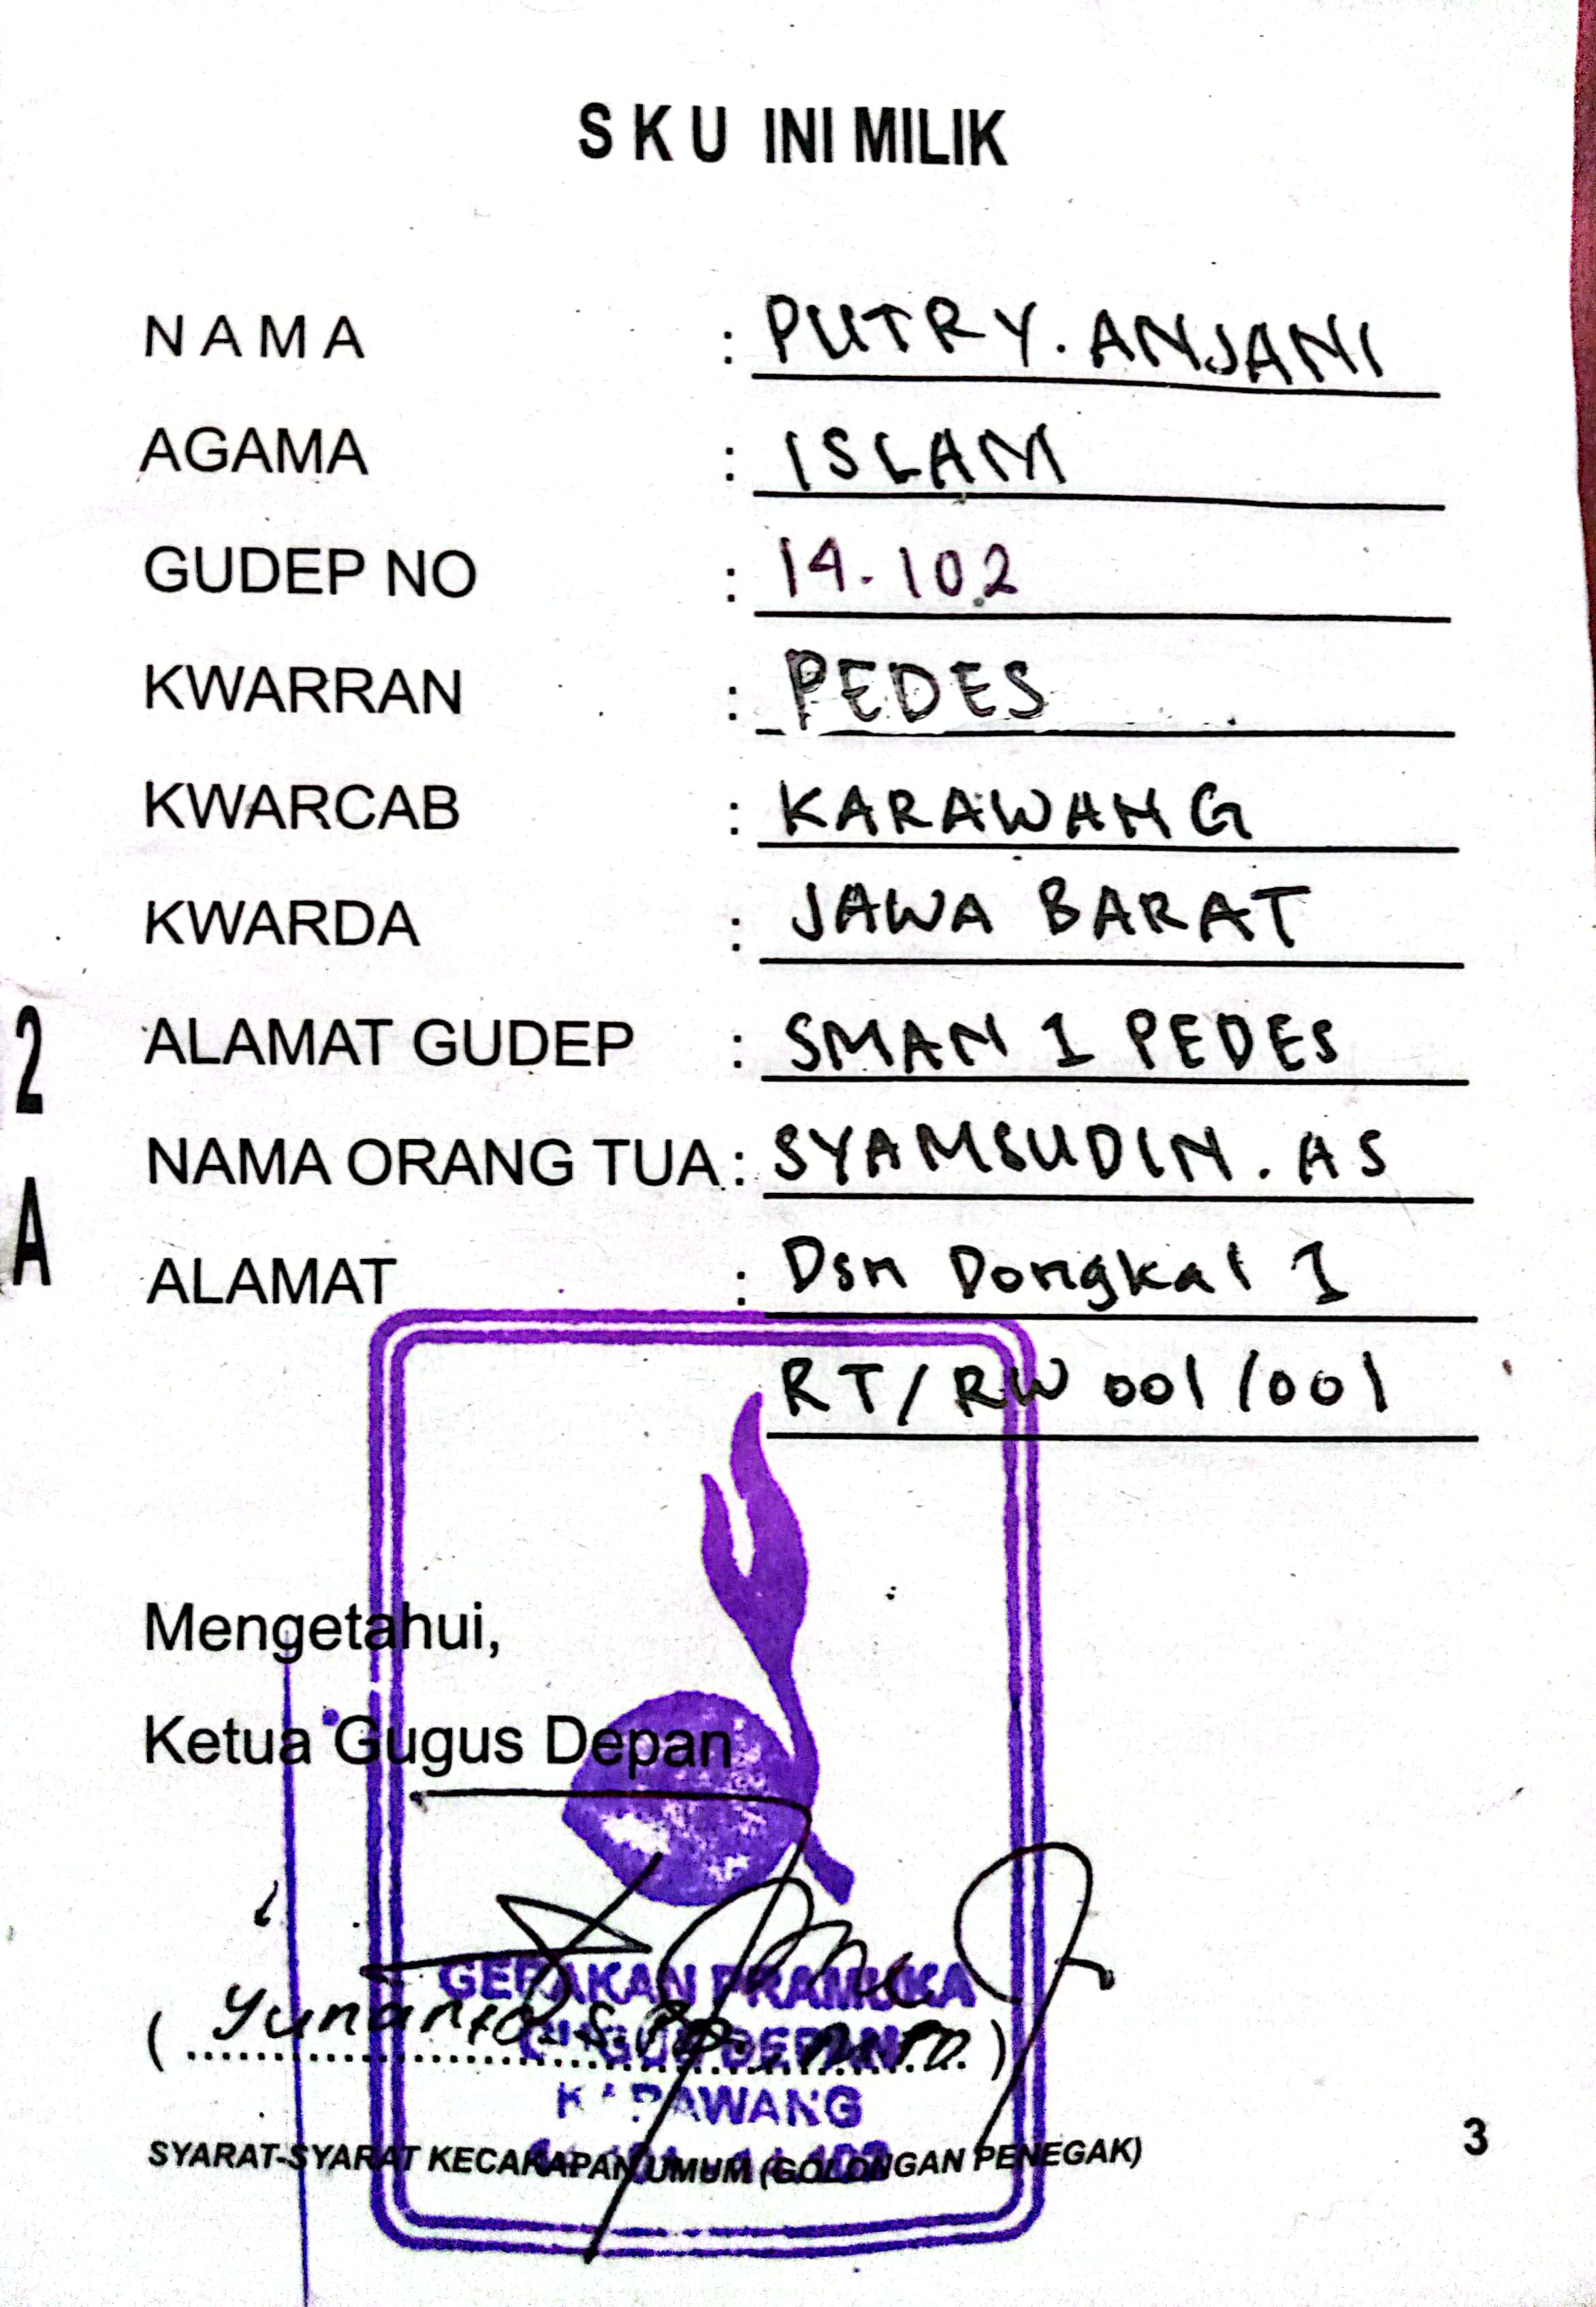 S K U INI MILIK
N A M A : PUTRY. ANJANI
AGAMA : ISLAM
GUDEP NO : 14.102
KWARRAN : PEDES
KWARCAB : KARAWANG
KWARDA : JAWA BARAT
ALAMAT GUDEP : SMAN 1 PEDES
NAMA ORANG TUA : SYAMSUDIN. AS
ALAMAT : Dsn Dongkal 1
RT/RW 001/001
2
A
Mengetahui,
Ketua Gugus Depan
GERAKAN PRAMUKA
(Yunanto S.Pd.,M.Pd.)
GUGUS DEPAN
KARAWANG
SYARAT-SYARAT KECAKAPAN UMUM (GOLONGAN PENEGAK) 3